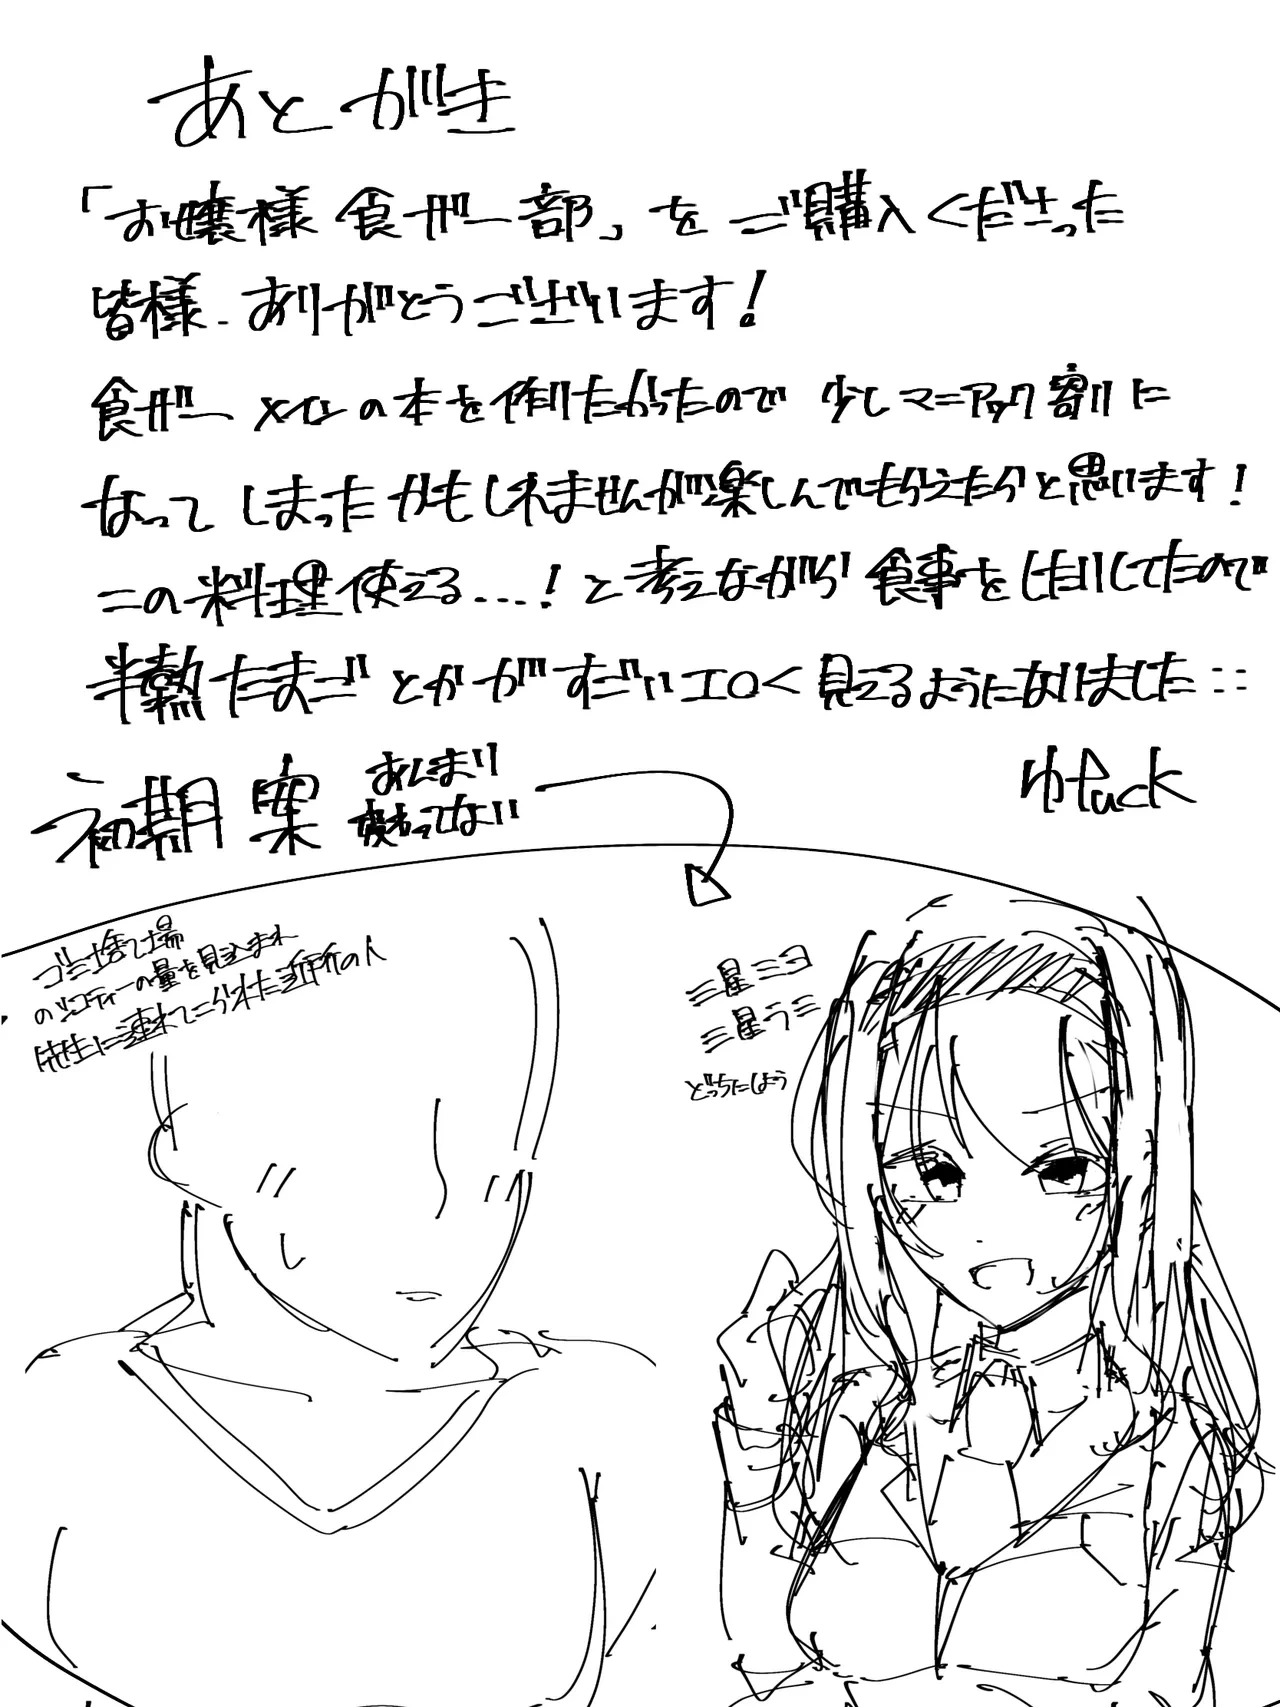 あとがき
「お嬢様食ザー部」をご購入くださった
皆様、ありがとうございます!
食ザーメインの本を作りたかったので少しマニアック寄りに
なってしまったかもしれませんが楽しんでもらえたらと思います!
この料理使える...!と考えながら食事をしたりしてたので
半熟たまごとかがすごいエロく見えるようになりました…
ゆfuck
初期案
あんまり
変わってない
ゴミ捨て場
のジョコティーの量を見込まれ
先生に連れてこられた近所の人
三星ミコ
三星ラミ
どっちにしよう